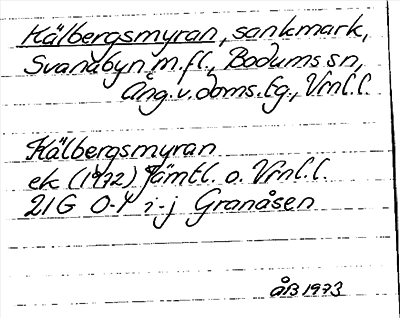 Kälbergsmyran, sankmark,
Svanabyn m.fl., Bodums sn,
Ång.v.doms.lg., Vrnl.l.
Kälbergsmyran
ek (1972) Jämtl. o. Vrnl.l.
21G 0-1 i-j Granåsen
ÅB 1973